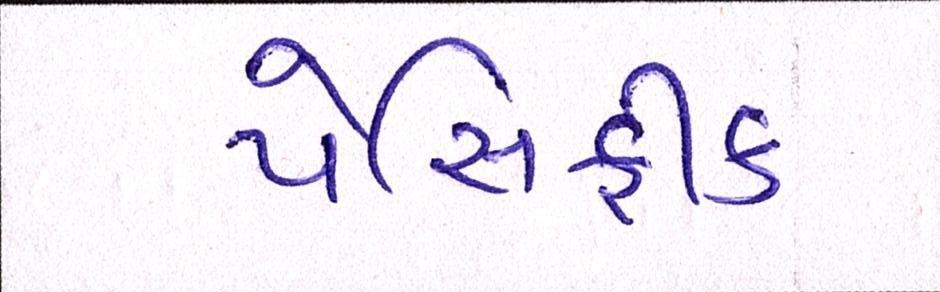 પેસિફીક